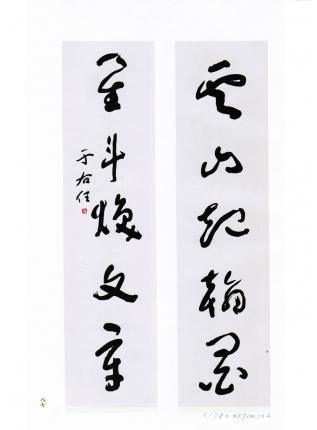 雲山起翰墨
星斗煥文章
于右任
八七